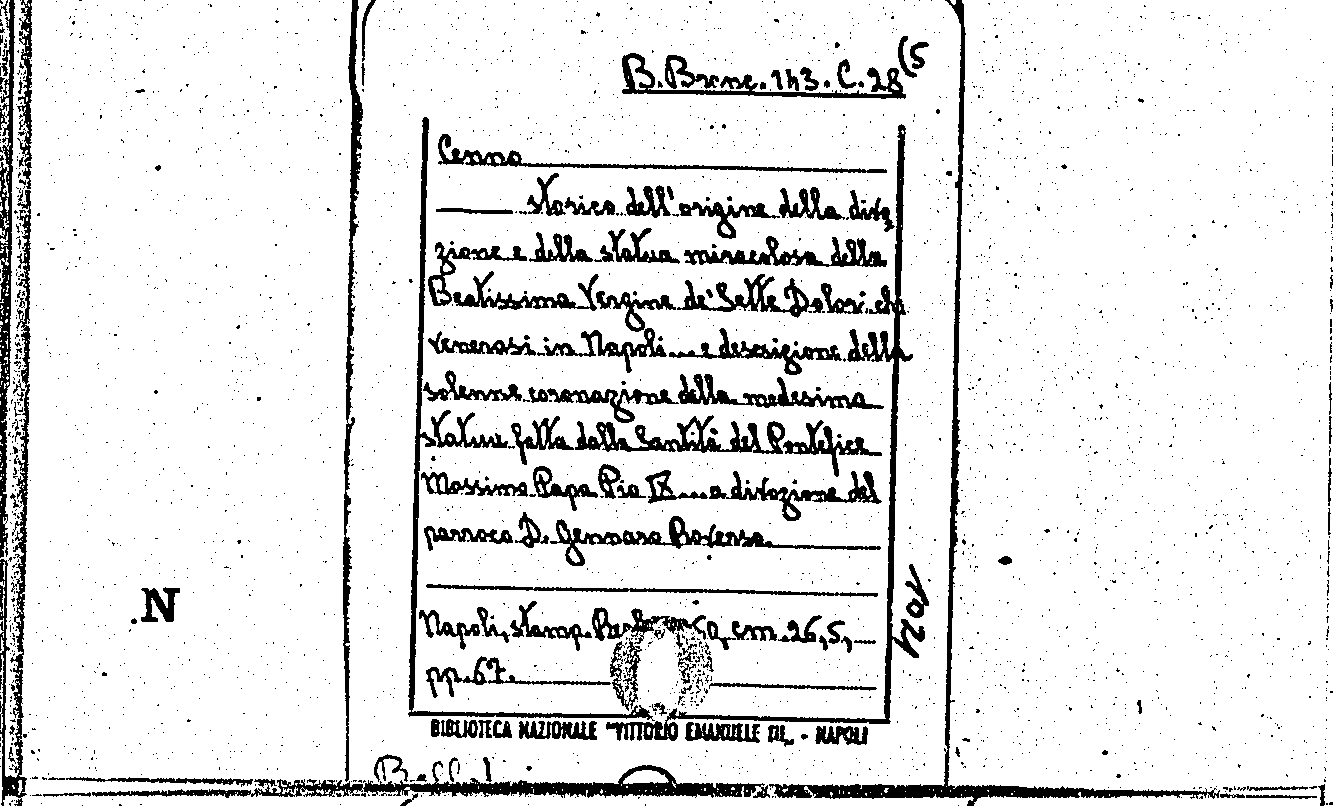 B. Branc. 143. C. 28(5
Cenno
storico dell'origine della divo
zione e della statua miracolosa della
Beatissima Vergine de' Sette Dolori che
venerasi in Napoli... e descrizione della
solenne coronazione della medesima
statua fatta dalla Santità del Pontefice
Massimo Papa Pio IX... a divozione del
parroco D. Gennaro Roversa.
Napoli, stamp. cm. 26,5,
pp. 67.
BIBLIOTECA NAZIONALE "VITTORIO EMANUELE III„ - NAPOLI
1024
.N